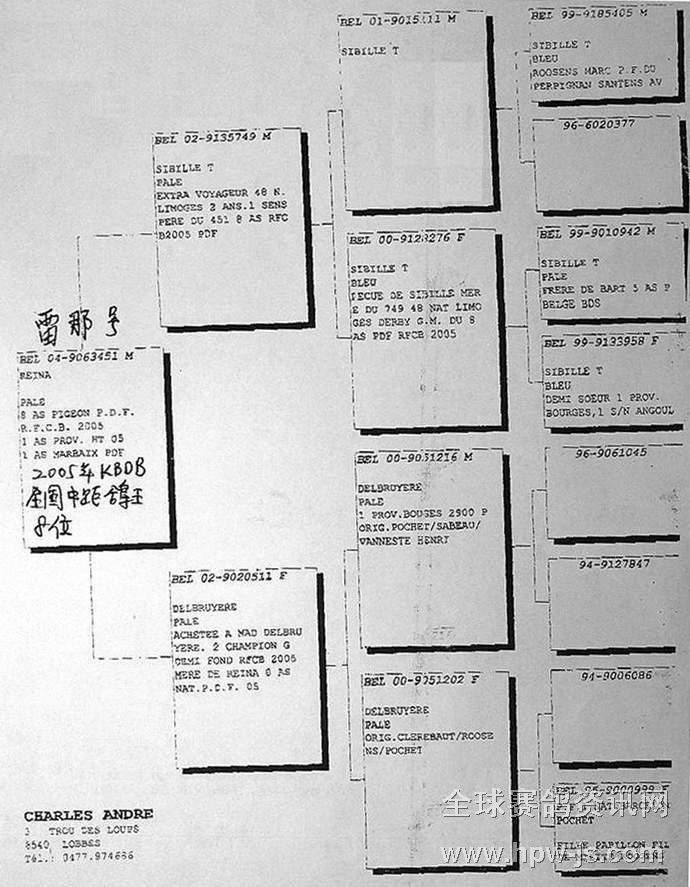 雷那号
BEL 04-9063451 M
REINA
PALE
8 AS PIGEON P.D.F.
R.F.C.B. 2005
1 AS PROV. HT 05
1 AS MARBAIX PDF
2005年KBDB
全国中距鸽王
8位
BEL 02-9135749 M
SIBILLE T
PALE
EXTRA VOYAGEUR 48 N.
LIMOGES 2 ANS.1 SENS
PERE DU 451 8 AS RFC
B2005 PDF
BEL 02-9020511 F
DELBRUYERE
PALE
ACHETEE A MAD DELBRU
YERE. 2 CHAMPION G
DEMI FOND RFCB 2005
MERE DE REINA 8 AS
NAT.P.D.F. 05
SIBILLE T
BEL 00-9128276 F
SIBILLE T
BLEU
TECUE DE SIBILLE MER
E DU 749 48 NAT LIMO
GES DERBY G.M. DU 8
AS PDF RFCB 2005
BEL 00-9051216 M
DELBRUYERE
PALE
1 PROV.BOUGES 2900 P
ORIG.POCHET/SABEAU/
VANNESTE HENRI
BEL 00-9051202 F
DELBRUYERE
PALE
ORIG.CLEREBAUT/ROOSE
NS/POCHET
BEL 99-9185405 M
SIBILLE T
BLEU
ROOSENS MARC 2.F.DU
PERPIGNAN SANTENS AV
96-6020377
BEL 99-9010942 M
SIBILLE T
PALE
FRERE DE BART 5 AS P
BELGE BDS
BEL 99-9133958 F
SIBILLE T
BLEU
DEMI SOEUR 1 PROV.
BOURGES,1 S/N ANGOUL
96-9061045
94-9127847
94-9006086
POCHET
FILLE PAPILLON FIL
CHARLES ANDRE
3 TROU DES LOUPS
6540 LOBBES
TEL.: 0477.974686
全球赛鸽资讯网
www.hpwjs.com